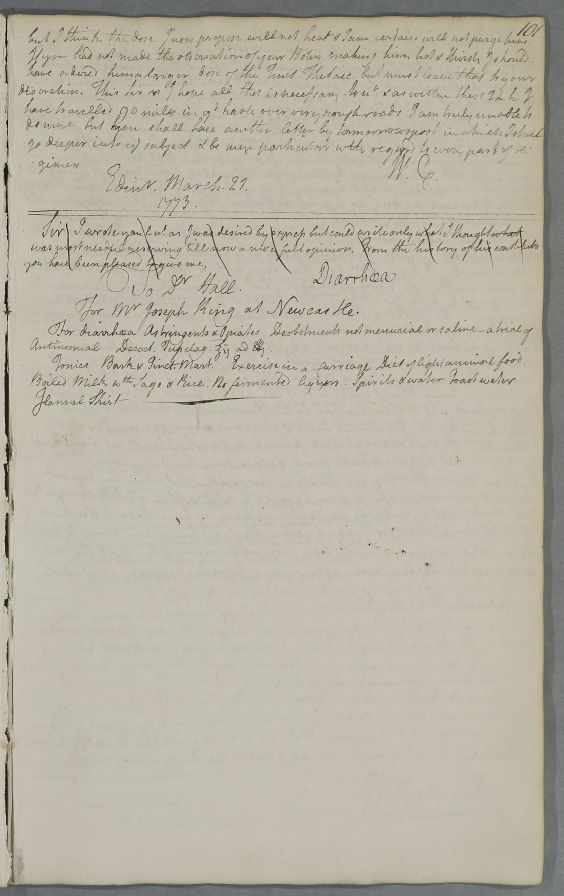 101
but I think the dose I now propose will not heat & I am certain will not purge him
If you had not made the observation of your Bolus making him hot & thirsty I should
have ordered him a larger dose of the Tinct Thebaic but must leave that to your
discretion. This Sir is I hope all that is necessary but as within these 24 h I
have travelled 90 miles in gt haste over very rough roads I am truly unable to
do more but you shall have another letter by tomorrows post in which I shall
go deeper into ye subject & be more particular with regard to every part of re
gimen
W. C.
Edinr. March. 21.
1773.
Sir I wrote you last as I was desired by express but could write only what I thought what
was most needful reserving till now a more full opinion. From the history of his
you have been pleased to give me,
Diarrhœa
To Dr Hall.
For Mr Joseph King at Newcastle.
For diarrhœa Astringents & Opiates Deobstruents not mercurial or saline - a trial of
Antimonial Decoct. Tussilag. ad
Tonics Bark & Tinct. Mart. Exercise in a Carriage Diet of light animal food.
Boiled Milk wth Sago & Rice. No fermented liquors. Spirits & water Toast water
Flannel Shirt